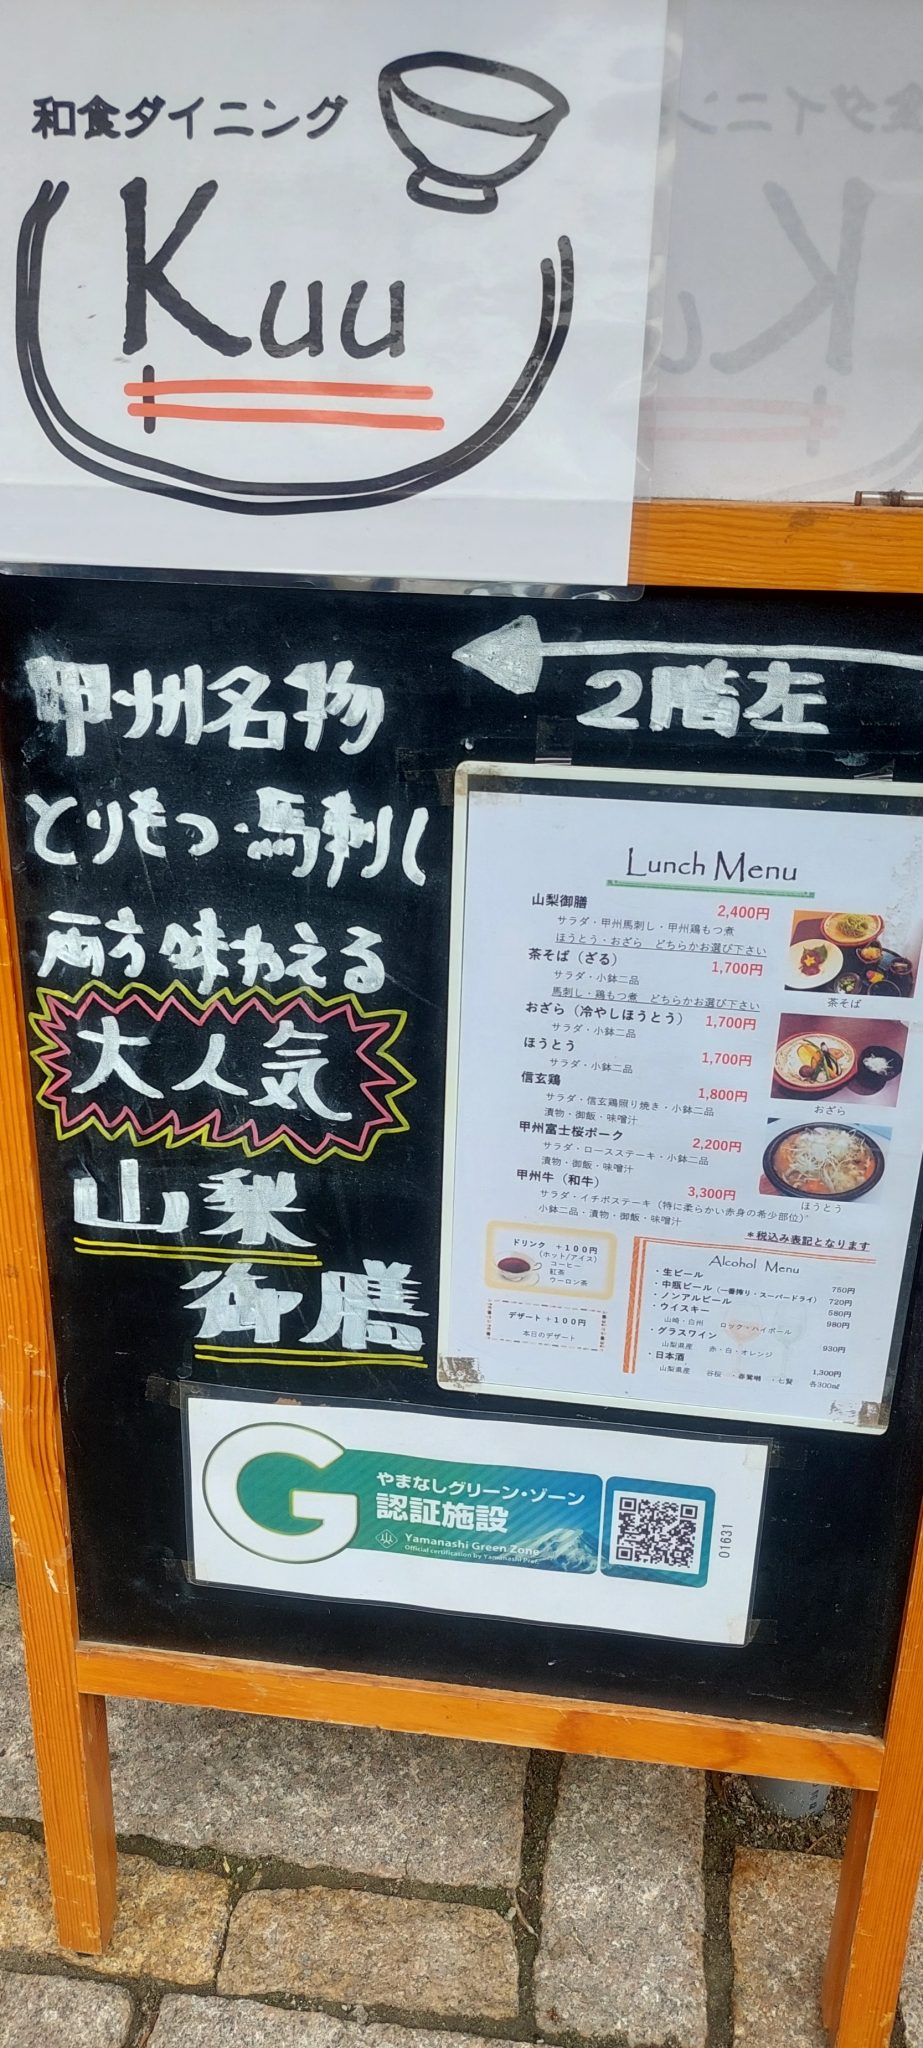 和食ダイニング
Kuu
2階左
甲州名物
とりもつ・馬刺し
両方味わえる
大人気
山梨
御膳
Lunch Menu
山梨御膳 2,400円
サラダ・甲州馬刺し・甲州鶏もつ煮
ほうとう・おざら どちらかお選び下さい
茶そば（ざる） 1,700円
サラダ・小鉢二品
馬刺し・鶏もつ煮 どちらかお選び下さい
おざら（冷やしほうとう） 1,700円
サラダ・小鉢二品
ほうとう 1,700円
サラダ・小鉢二品
信玄鶏 1,800円
サラダ・信玄鶏照り焼き・小鉢二品
漬物・御飯・味噌汁
甲州富士桜ポーク 2,200円
サラダ・ロースステーキ・小鉢二品
漬物・御飯・味噌汁
甲州牛（和牛） 3,300円
サラダ・イチボステーキ（特に柔らかい赤身の希少部位）
小鉢二品・漬物・御飯・味噌汁
茶そば
おざら
ほうとう
＊税込み表記となります
ドリンク ＋100円
（ホット/アイス）
コーヒー
紅茶
ウーロン茶
デザート＋100円
本日のデザート
Alcohol Menu
・生ビール 750円
・中瓶ビール（一番搾り・スーパードライ） 720円
・ノンアルビール 580円
・ウイスキー 980円
山崎・白州 ロック・ハイボール
・グラスワイン 930円
山梨県産 赤・白・オレンジ
・日本酒 1,300円
山梨県産 谷桜 ・春鶯囀 ・七賢 各300ml
G
やまなしグリーン・ゾーン
認証施設
Yamanashi Green Zone
Official certification by Yamanashi Pref.
01631